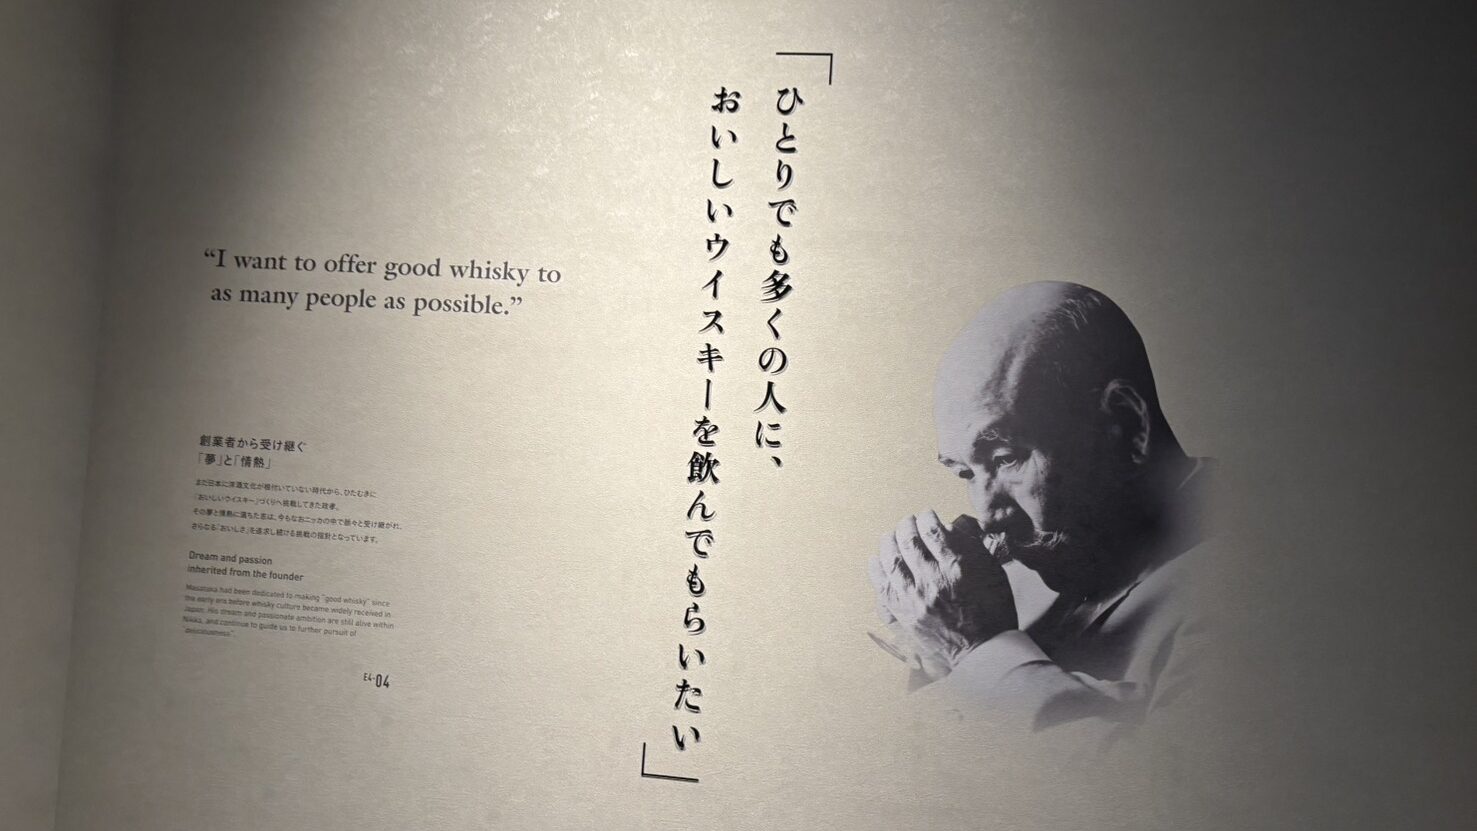 「ひとりでも多くの人に、
おいしいウイスキーを飲んでもらいたい」
“I want to offer good whisky to
as many people as possible.”
創業者から受け継ぐ
「夢」と「情熱」
まだ日本に洋酒文化が根付いていない時代から、ひたむきに
「おいしいウイスキー」づくりへ挑戦してきた政孝。
その夢と情熱に満ちた志は、今もなおニッカの中で脈々と受け継がれ、
さらなる「おいしさ」を追求し続ける挑戦の指針となっています。
Dream and passion
inherited from the founder
Masataka had been dedicated to making “good whisky” since
the early era before whisky culture became widely received in
Japan. His dream and passionate ambition are still alive within
Nikka, and continue to guide us to further pursuit of
“deliciousness”.
E4-04